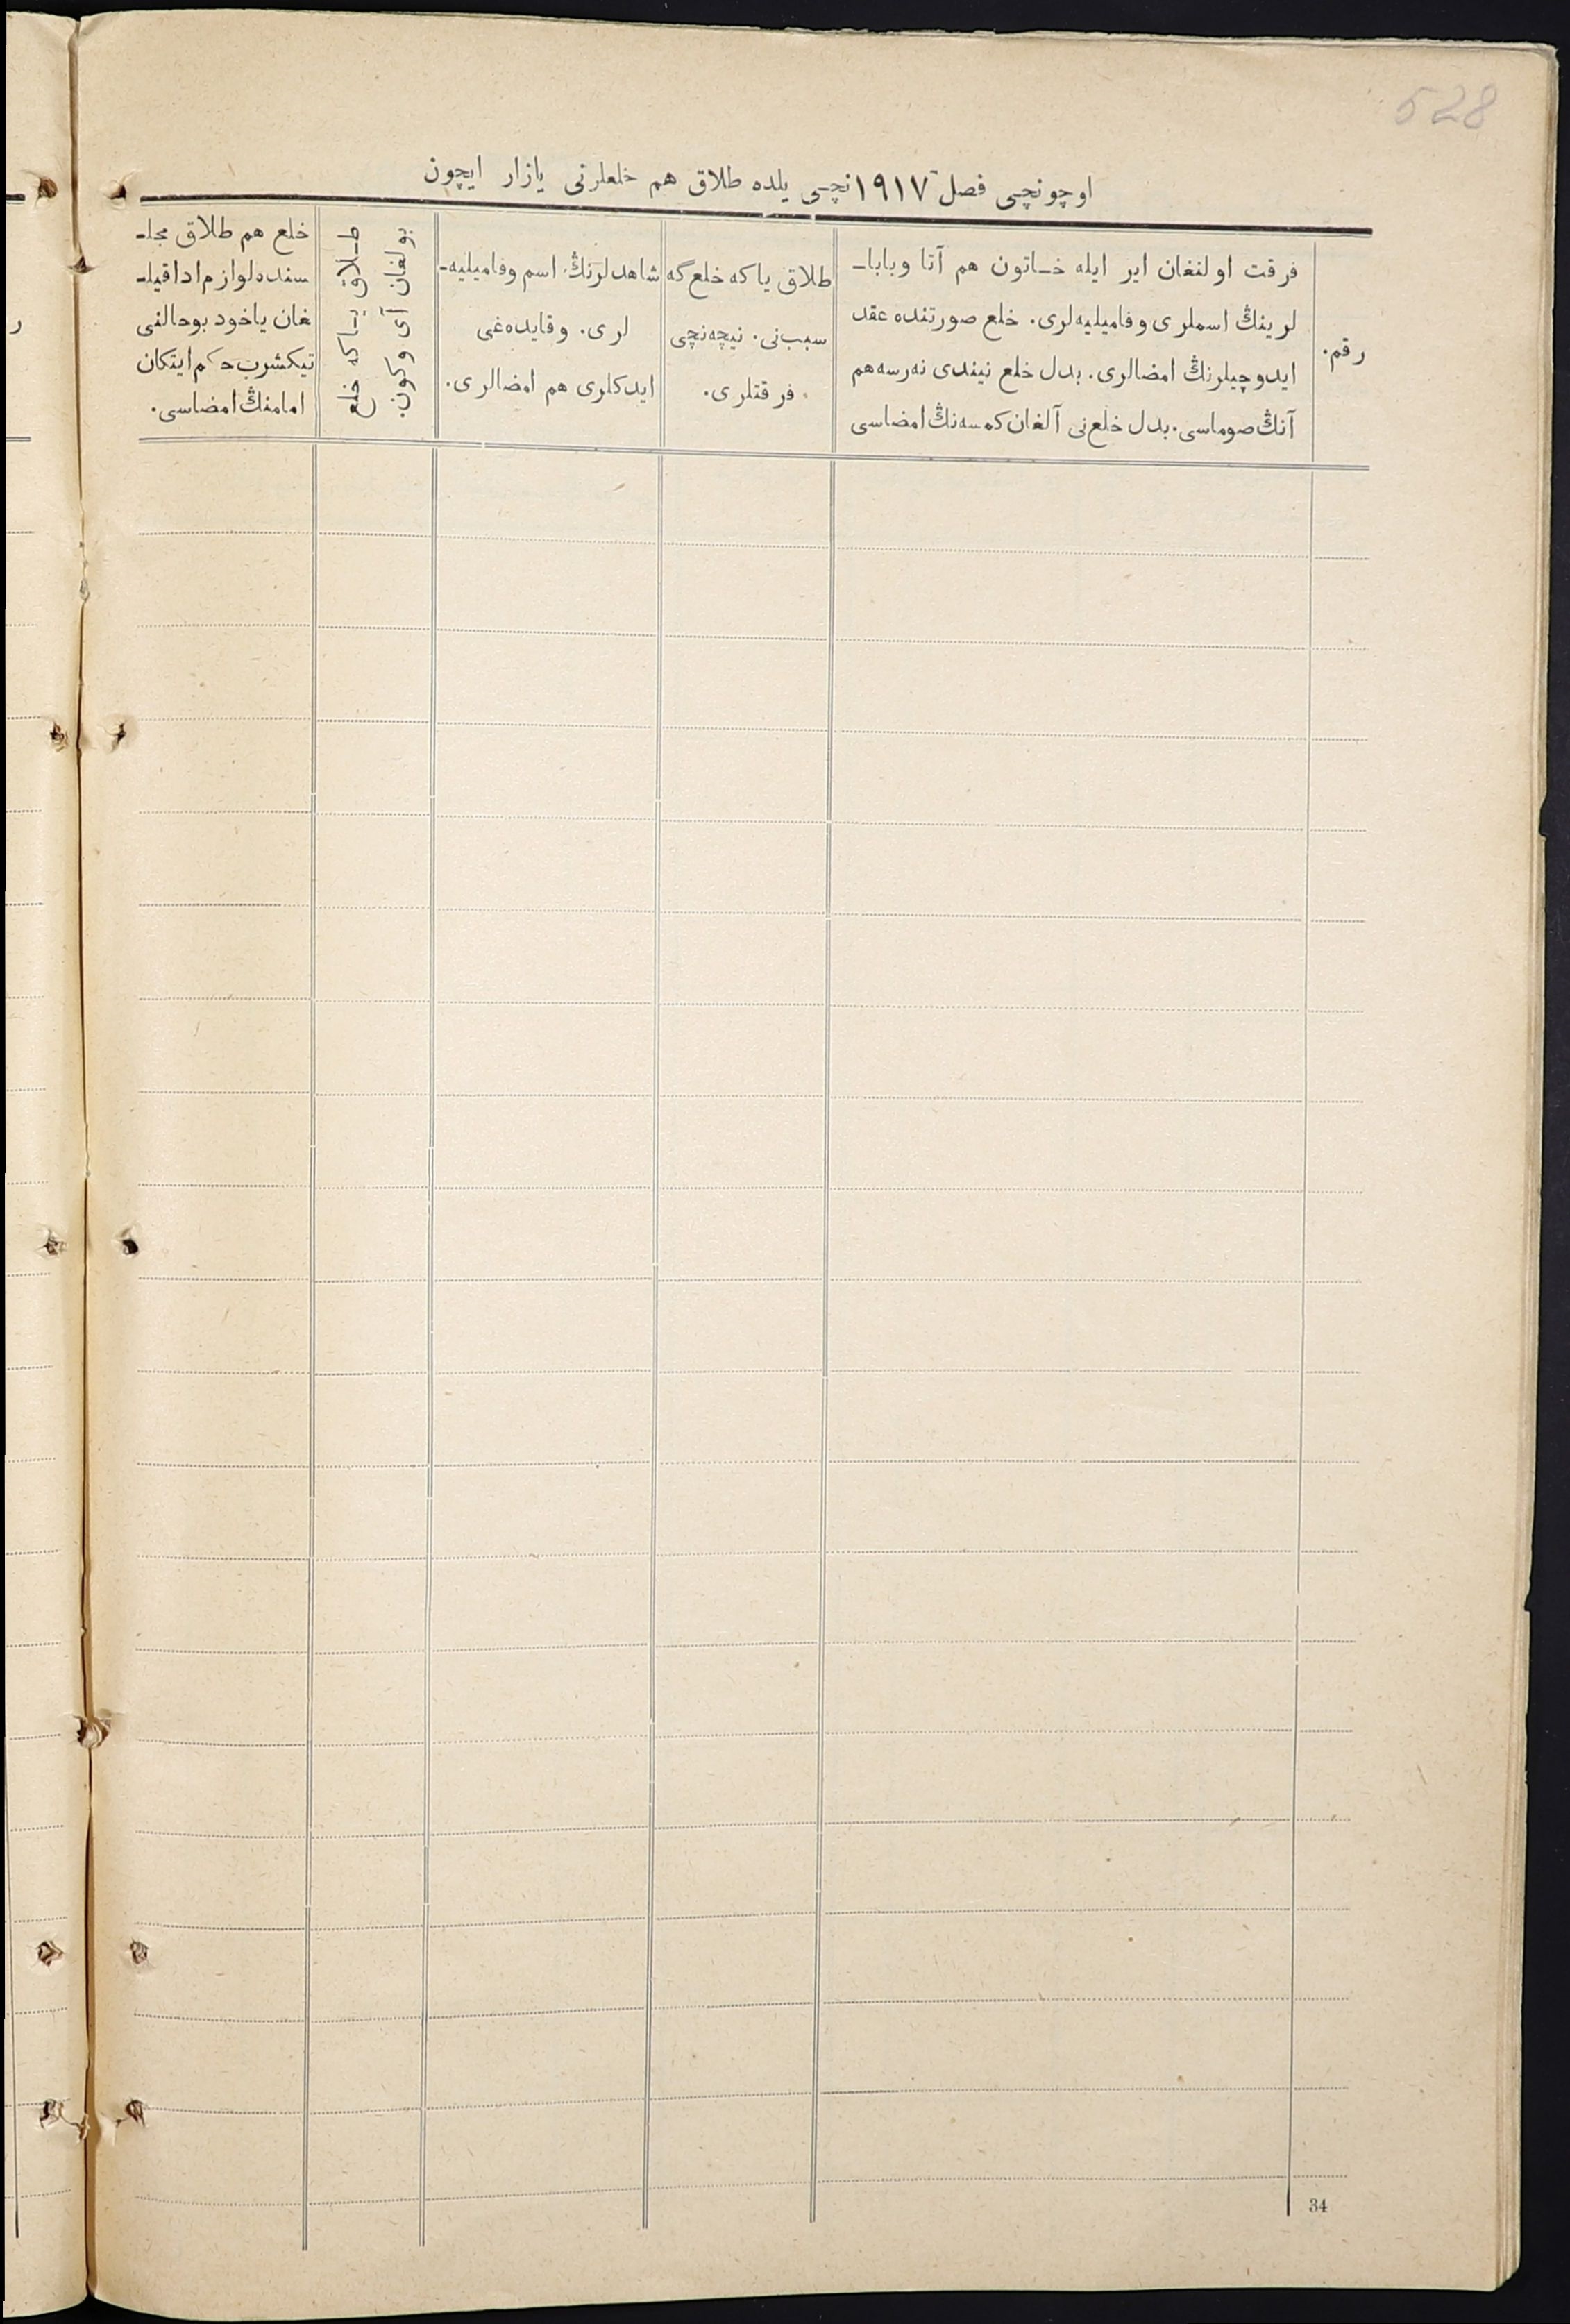 528
اوچونچی فصل ١٩١٧ نچی یلده طلاق هم خلعلرنی یازار ایچون
رقم.
فرقت اولنغان ایر ایله خاتون هم آتا و بابا-
لرینڭ اسملری و فامیلیه‌لری. خلع صورتنده عقد
ایدوچیلرنڭ امضالری. بدل خلع نیندی نه‌رسه هم
آنڭ صوماسی. بدل خلع‌نی آلغان کمسه‌نڭ امضاسی
طلاق یا که خلع گه
سبب‌نی. نیچه‌نچی
فرقتلری.
شاهدلرنڭ اسم و فامیلیه-
لری. و قایده‌غی
ایدکلری هم امضالری.
طلاق یا که خلع
بولغان آی و کون.
خلع هم طلاق مجلـ
سنده لوازم ادا قیلـ
غان یاخود بو حالنی
تیکشرب حکم ایتکان
امامنڭ امضاسی.
34